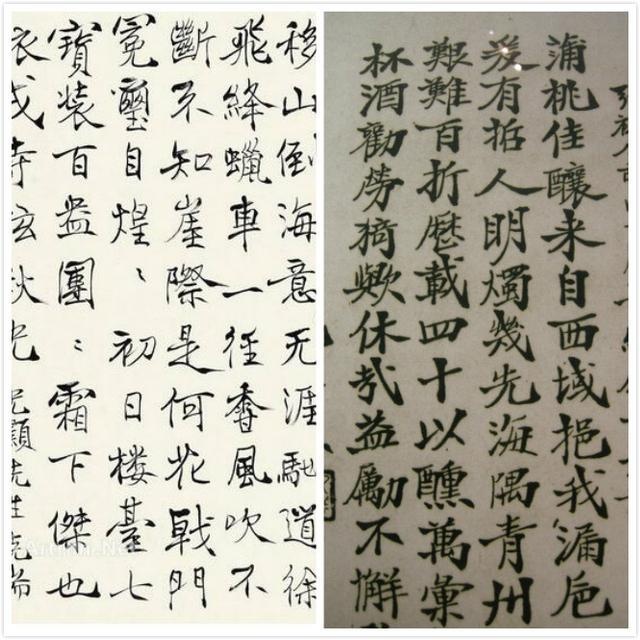 移山倒海意无涯馳道徐
飛絳蠟車一徑香風吹不
斷不知崖際是何花戟門
冕璽自煌〻初日楼臺七
寶装百盎團〻霜下傑也
蒲桃佳釀来自西域挹我漏巵
爰有哲人明燭幾先海隅青州
艱難百折歷載四十以醺萬彙
杯酒勸勞猗歟休哉益勵不懈